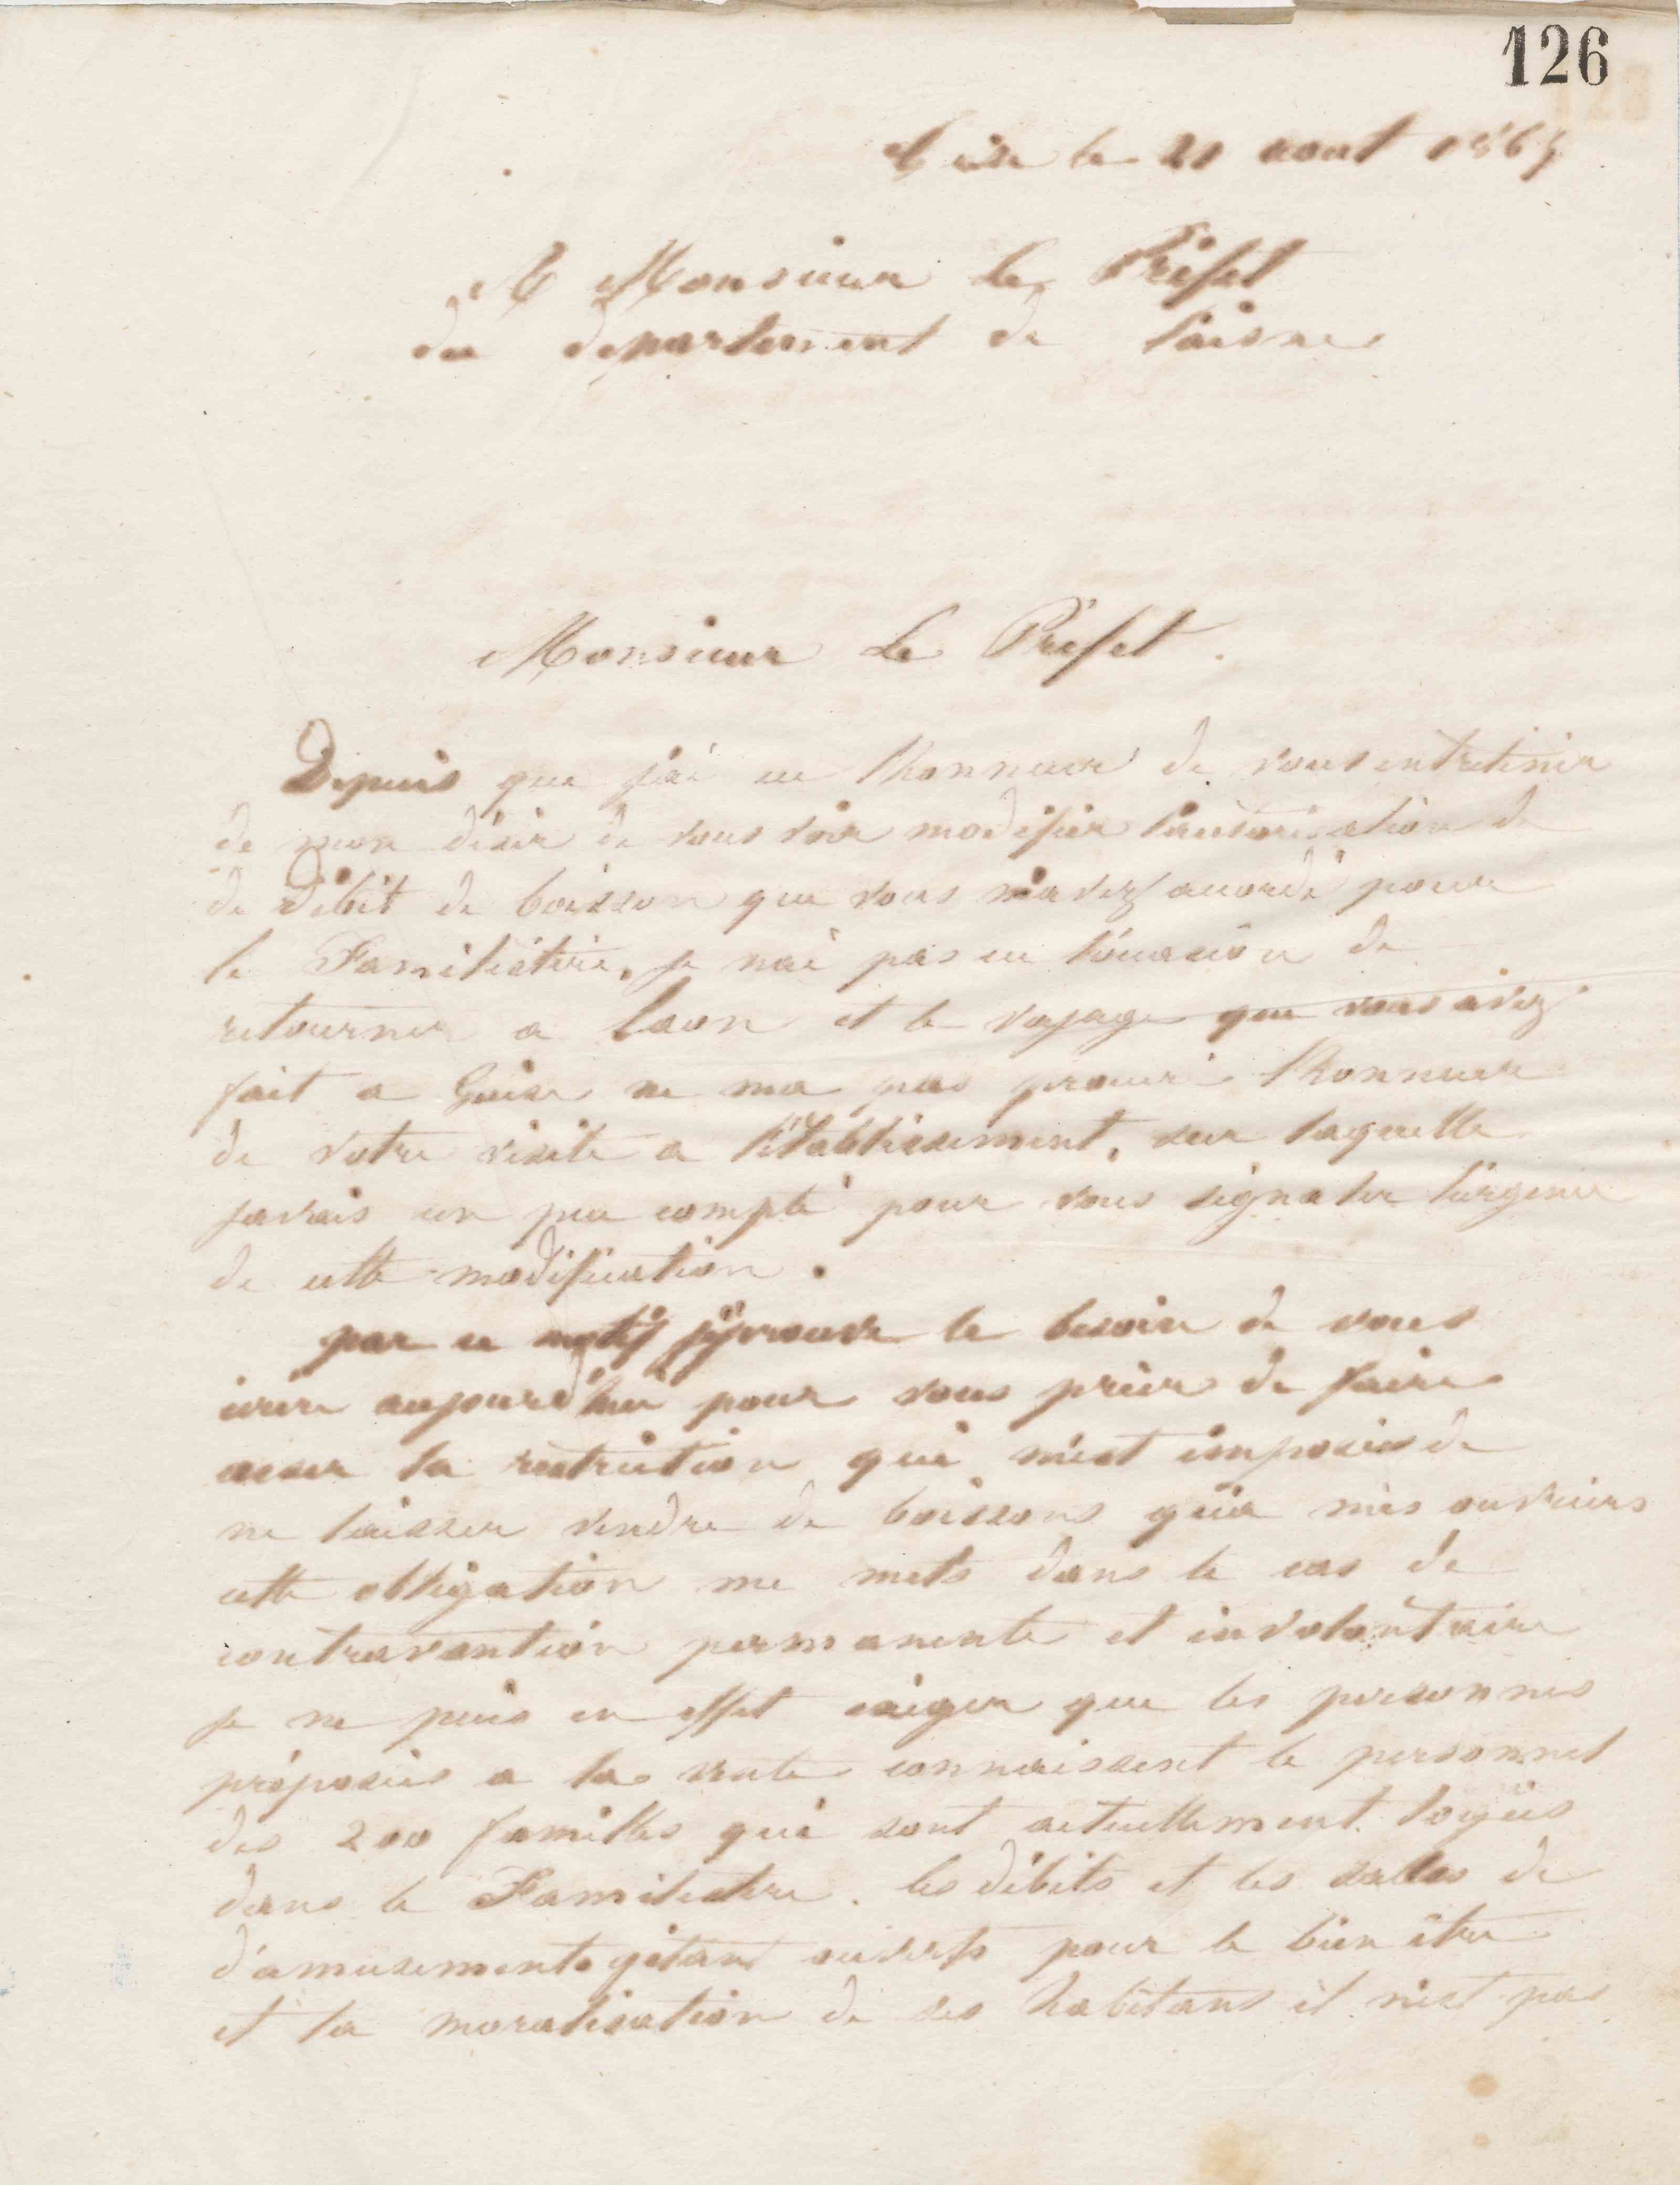 126
Guise le 21 aout 1865
A Monsieur le Préfet
du département de laisne
Monsieur Le Préfet.
Depuis que jai eu lhonneur de vous entretenir
de mon désir de vous voir modifier lautorisation de
de débit de boisson que vous mavez accordé pour
le Familistère, je nai pas eu loccasion de
retourner a Laon et le voyage que vous avez
fait a Guise ne ma pas procuré lhonneur
de votre visite a l'établissement, sur laquelle
javais un peu compté pour vous signaler lurgence
de cette modification.
par ce motif jéprouve le besoin de vous
écrire aujourd'hui pour vous prier de faire
cesser la restriction qui m'est imposée de
ne laisser vendre de boissons qu'a mes ouvriers
cette obligation me mets dans le cas de
contravention permanente et involontaire
je ne puis en effet exiger que les personnes
préposées a la vente connaissent le personnel
des 200 familles qui sont actuellement logées
dans le Familistère. les débits et les salles de
d'amusements étant ouverts pour le bien être
et la moralisation de ses habitans il n'est pas